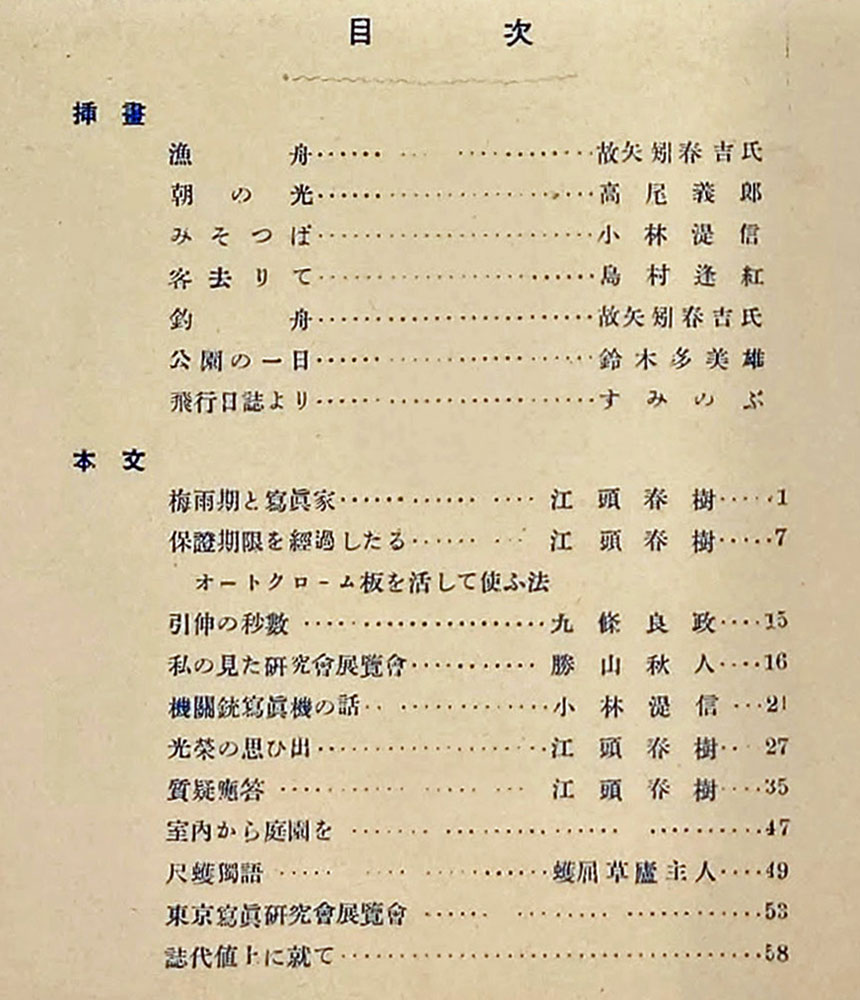 目次
挿畫
漁舟…………………………故矢野春吉氏
朝の光…………………………高尾義郎
みそつぱ…………………………小林湜信
客去りて…………………………島村逢紅
釣舟…………………………故矢野春吉氏
公園の一日…………………………鈴木多美雄
飛行日誌より…………………………すみのぶ
本文
梅雨期と寫眞家…………………江頭春樹……1
保證期限を經過したる…………江頭春樹……7
オートクローム板を活して使ふ法
引伸の秒數…………………………九條良政……15
私の見た硏究會展覽會…………勝山秋人……16
機關銃寫眞機の話…………………小林湜信……21
光榮の思ひ出…………………………江頭春樹……27
質疑應答…………………………江頭春樹……35
室內から庭園を…………………………47
尺蠖獨語…………………………蠖屈草廬主人……49
東京寫眞硏究會展覽會…………………………53
誌代値上に就て…………………………58